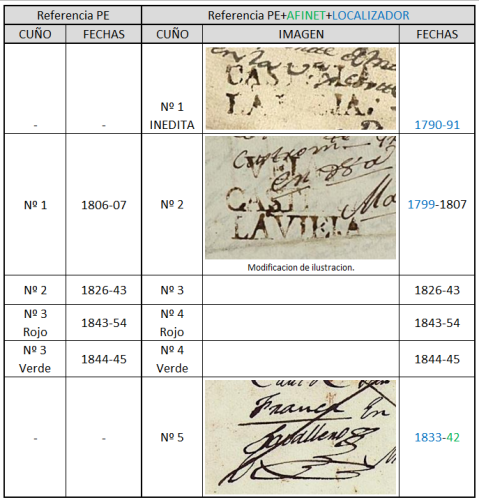 Referencia PE Referencia PE+AFINET+LOCALIZADOR
CUÑO FECHAS CUÑO IMAGEN FECHAS
- - Nº 1 INEDITA 1790-91
Nº 1 1806-07 Nº 2 1799-1807
CASTI
LAVIEIA
Modificacion de ilustracion.
Nº 2 1826-43 Nº 3 1826-43
Nº 3 Rojo 1843-54 Nº 4 Rojo 1843-54
Nº 3 Verde 1844-45 Nº 4 Verde 1844-45
- - Nº 5 1833-42
Franca En